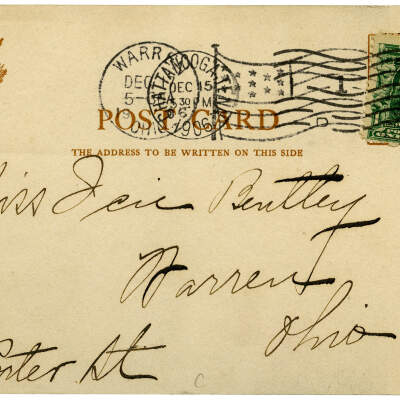 WARR
DEC
5-
OHIO
CHATTANOOGA
DEC 15
5 30 PM
1906
1
D
POST CARD
THE ADDRESS TO BE WRITTEN ON THIS SIDE
iss Icie Bentley
Warren
Ohio
orter St.
C